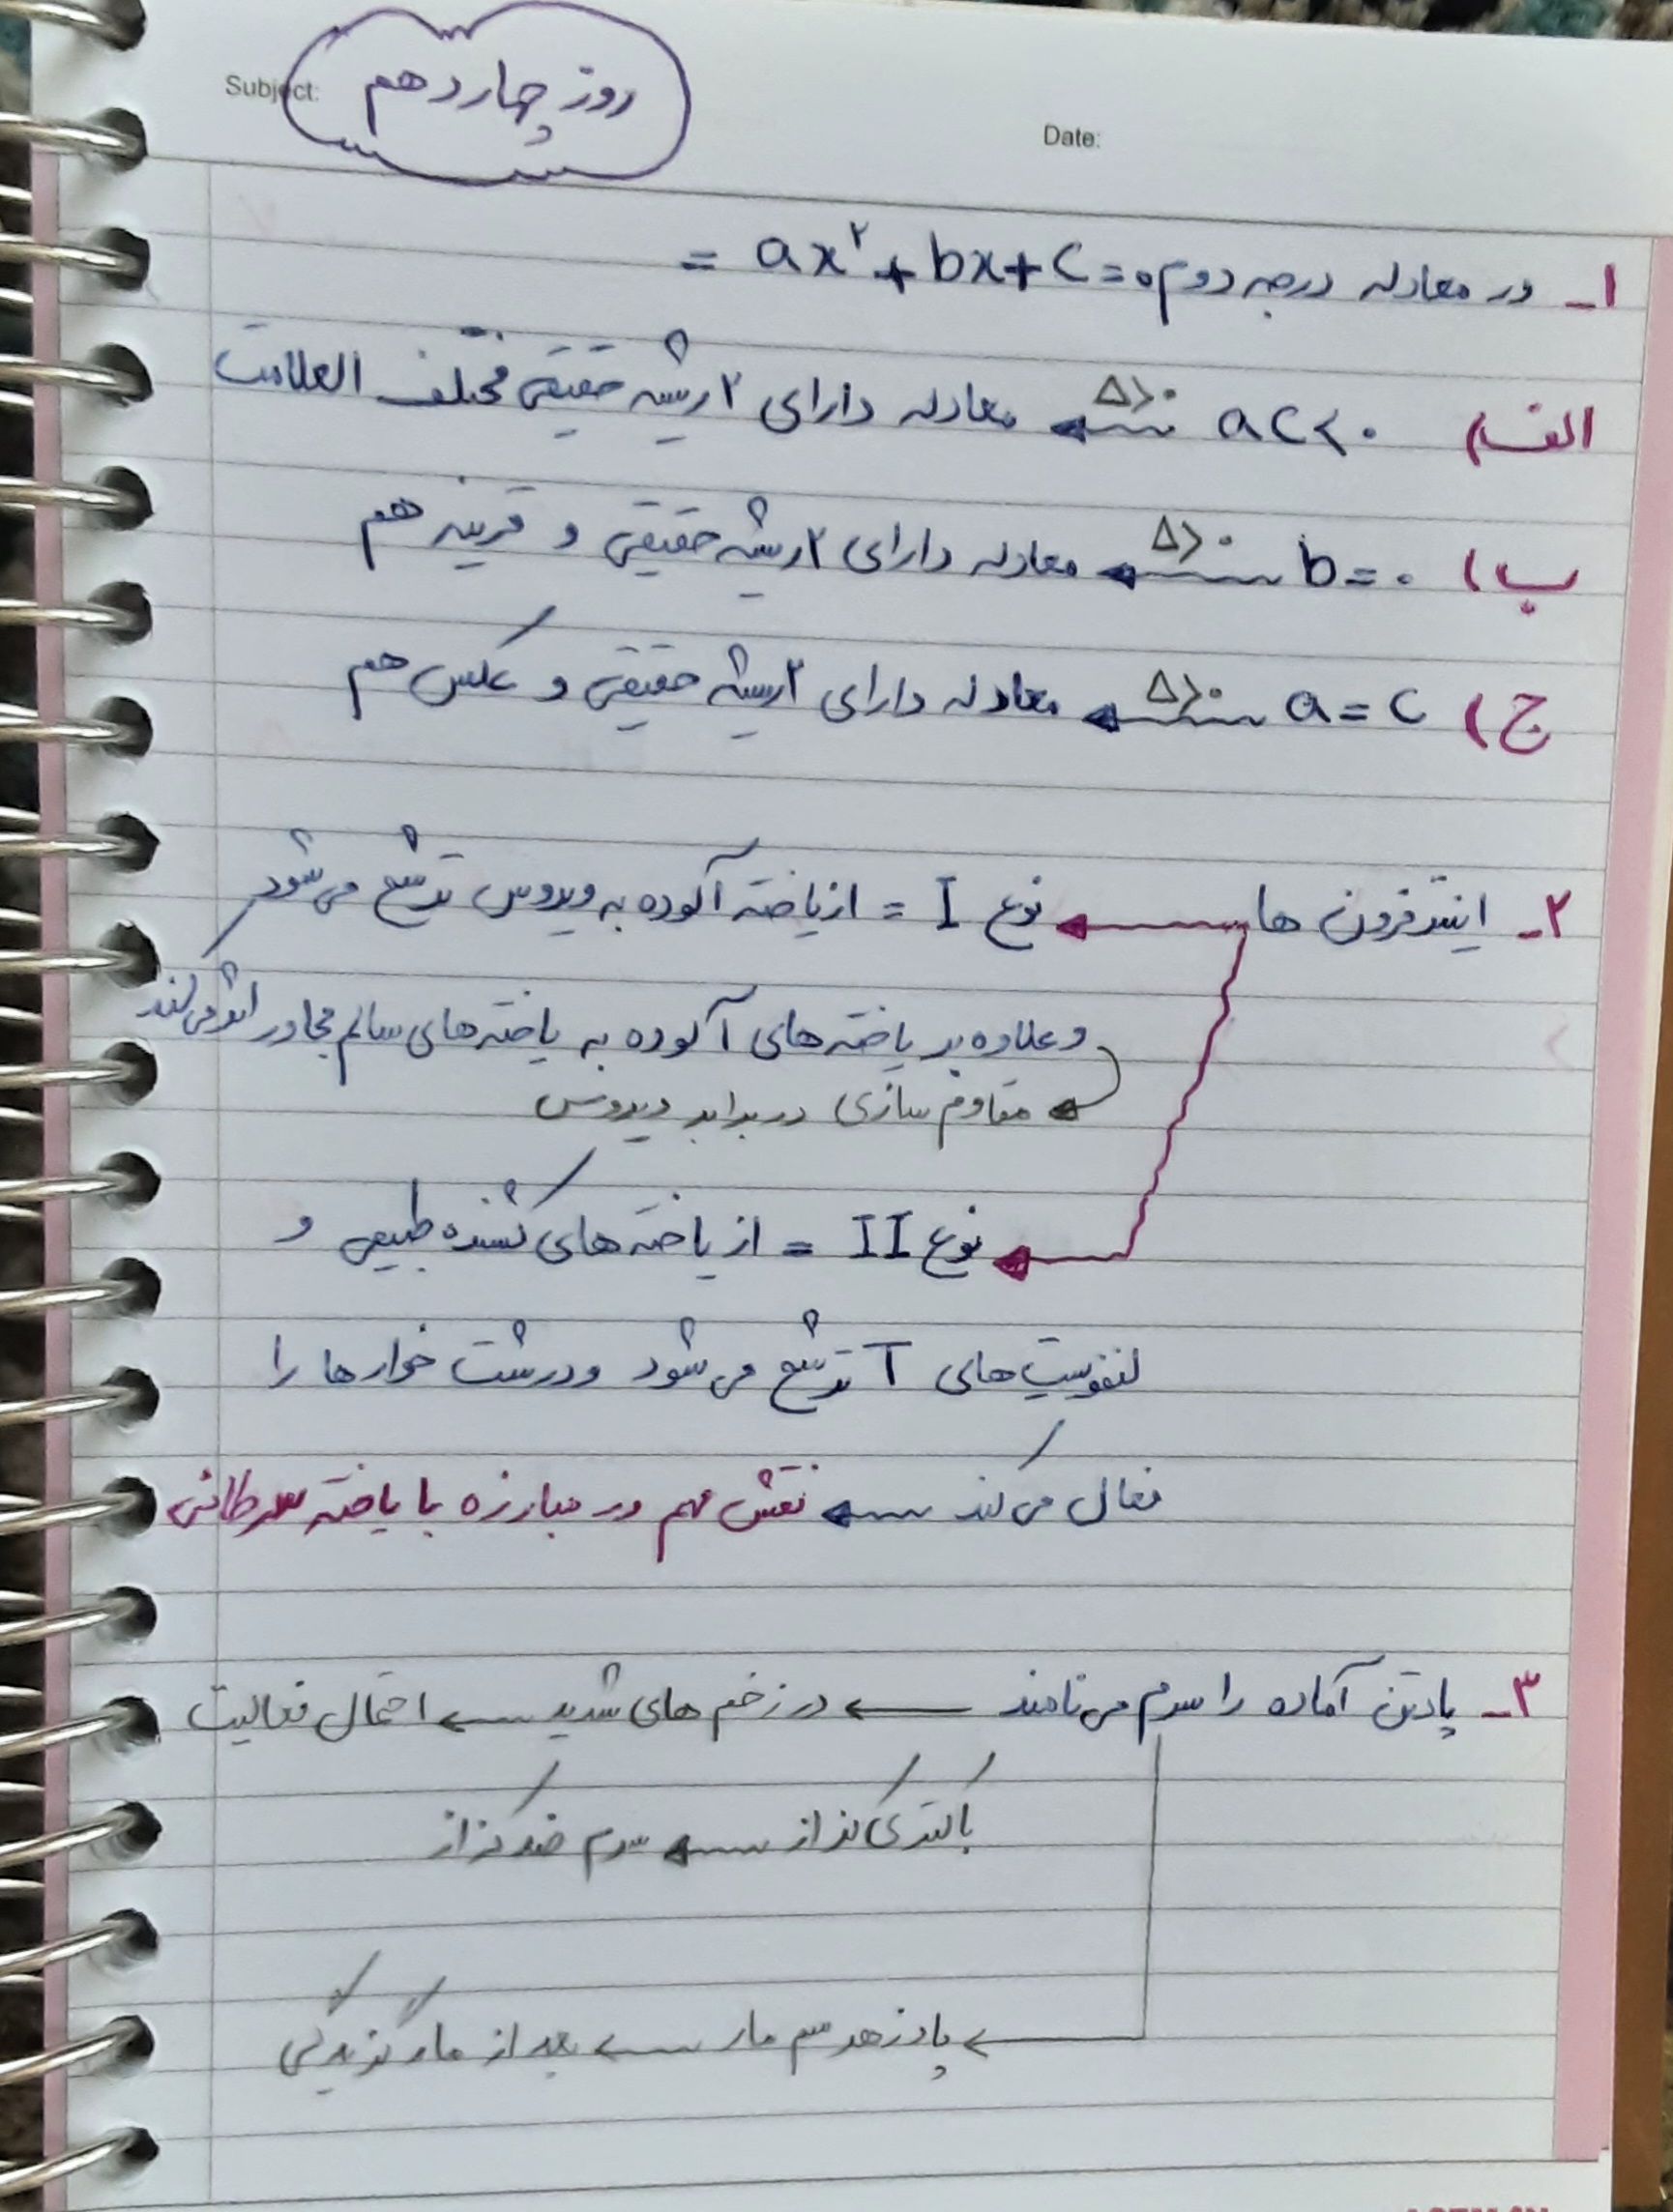 Subject:
روز چهاردهم
Date:
۱_ در معادله درجه دوم ax²+bx+c=۰ =
الف) ac<۰ ← Δ>۰ معادله دارای ۲ ریشه حقیقی مختلف العلامت
ب) b=۰ ← Δ>۰ معادله دارای ۲ ریشه حقیقی و قرینه هم
ج) a=c ← Δ>۰ معادله دارای ۲ ریشه حقیقی و عکس هم
۲_ اینترفرون ها ← نوع I = از یاخته آلوده به ویروس ترشح می شود
و علاوه بر یاخته های آلوده به یاخته های سالم مجاور اثر می کند
← مقاوم سازی در برابر ویروس
← نوع II = از یاخته های کشنده طبیعی و
لنفوسیت های T ترشح می شود و درشت خوارها را
فعال می کند ← نقش مهم در مبارزه با یاخته سرطانی
۳_ پادتن آماده را سرم می نامند ← در زخم های شدید ← احتمال فعالیت
باکتری کزاز ← سرم ضد کزاز
← پادزهر سم مار ← بعد از مار گزیدگی